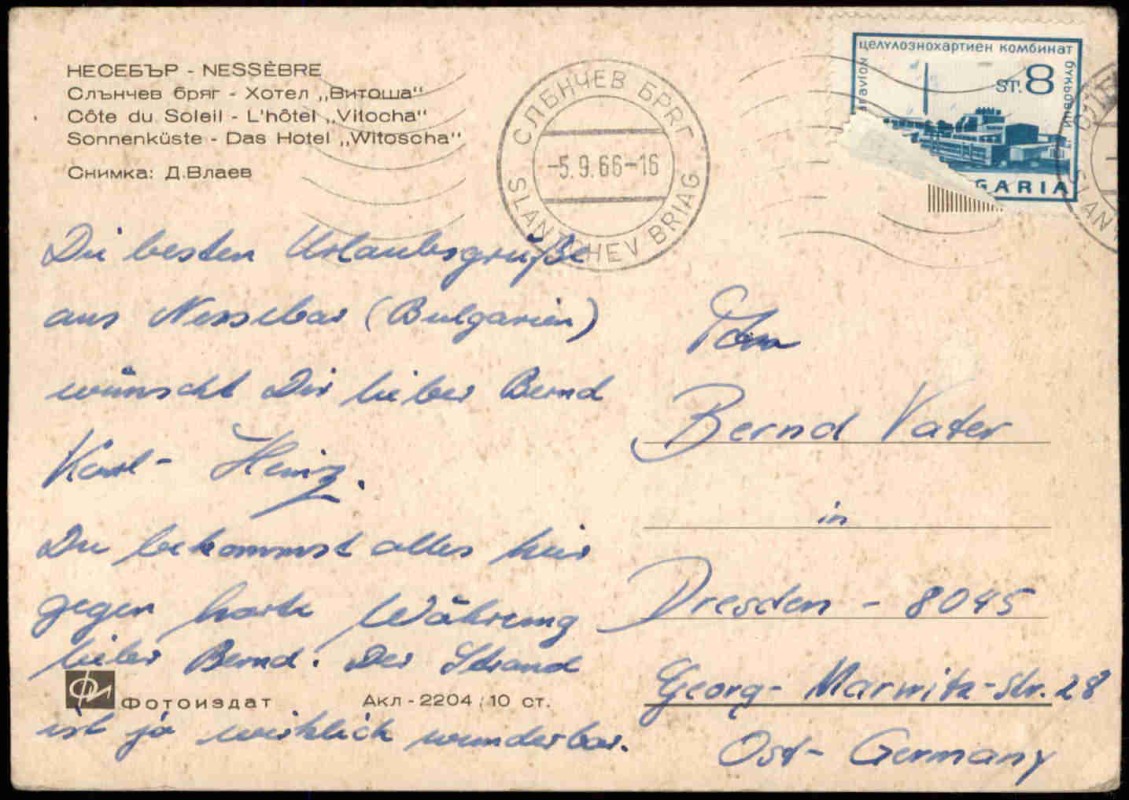 НЕСЕБЪР - NESSÈBRE
Слънчев бряг - Хотел „Витоша"
Côte du Soleil - L'hôtel „Vitocha"
Sonnenküste - Das Hotel „Witoscha"
Снимка: Д.Влаев
СЛЪНЧЕВ БРЯГ
-5.9.66-16
SLANTCHEV BRIAG
ЦЕЛУЛОЗНОХАРТИЕН КОМБИНАТ
avion
ST.8
GARIA
SLANT
Die besten Urlaubsgrüße
aus Nessebar (Bulgarien)
wünscht Dir lieber Bernd
Karl-Heinz.
Du bekommst alles hier
gegen harte Währung
lieber Bernd. Der Strand
ist ja wirklich wunderbar.
Bernd Vater
in
Dresden - 8045
Georg-Marwitz-str. 28
Ost-Germany
Фотоиздат
Акл - 2204 / 10 ст.